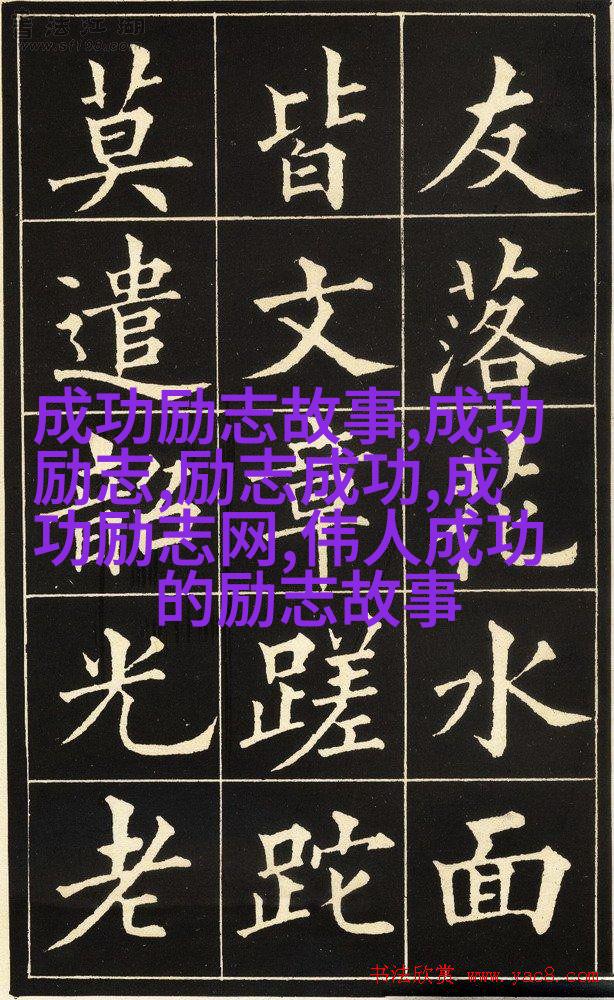 书法江湖
www.sf108.com
友落花水面
皆文章蹉跎
莫遣韶光老
成功励志故事,成功
励志,励志成功,成
功励志网,伟人成功
的励志故事
书法欣赏 www.yac8.com